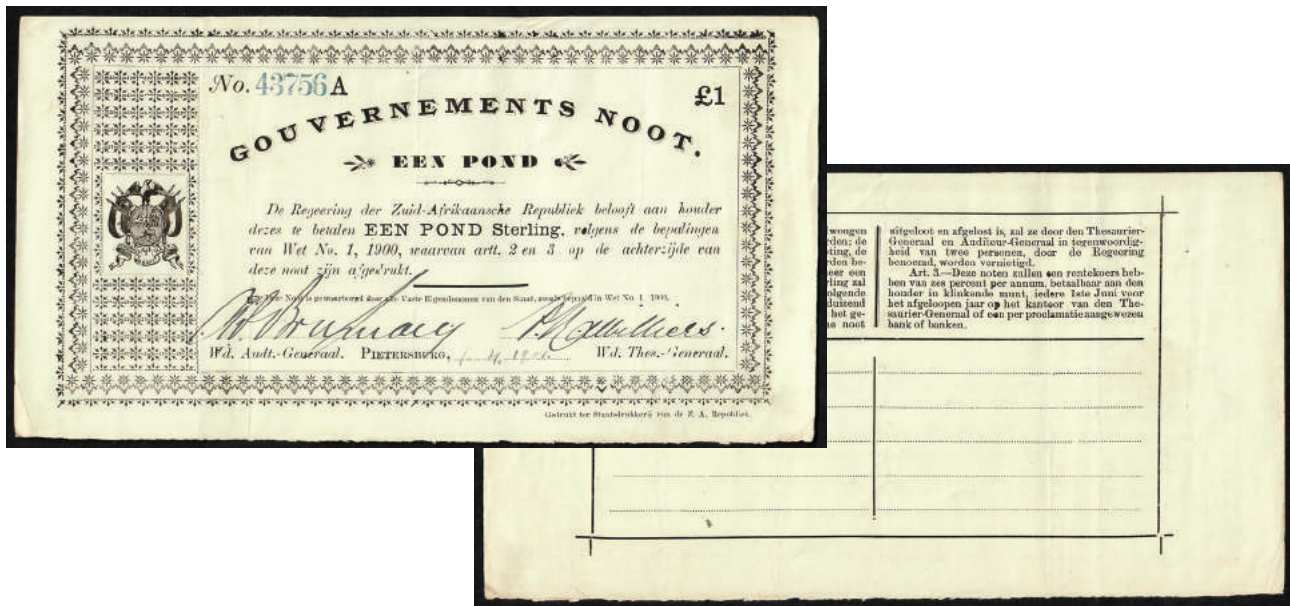 No. 43756 A
£1
GOUVERNEMENTS NOOT.
EEN POND
De Regeering der Zuid-Afrikaansche Republiek belooft aan houder
dezes te betalen EEN POND Sterling, volgens de bepalingen
van Wet No. 1, 1900, waarvan artt. 2 en 3 op de achterzijde van
deze noot zijn afgedrukt.
Deze Noot is gewaarborgd door alle Vaste Eigendommen van den Staat, zooals bepaald in Wet No 1 1900.
Wd. Audt.-Generaal. PIETERSBURG, Wd. Thes.-Generaal.
Gedrukt ter Staatsdrukkerij van de Z. A. Republiek.
wongen
rden; de
ting, de
rden be-
neer een
rling zal
olgende
duizend
het ge-
ne noot
uitgeloot en afgelost is, zal ze door den Thesaurier-
Generaal en Auditeur-Generaal in tegenwoordig-
heid van twee personen, door de Regeering
benoemd, worden vernietigd.
Art. 3.—Deze noten zullen een rentekoers heb-
ben van zes percent per annum, betaalbaar aan den
houder in klinkende munt, iedere 1ste Juni voor
het afgeloopen jaar op het kantoor van den The-
saurier-Generaal of een per proclamatie aangewezen
bank of banken.